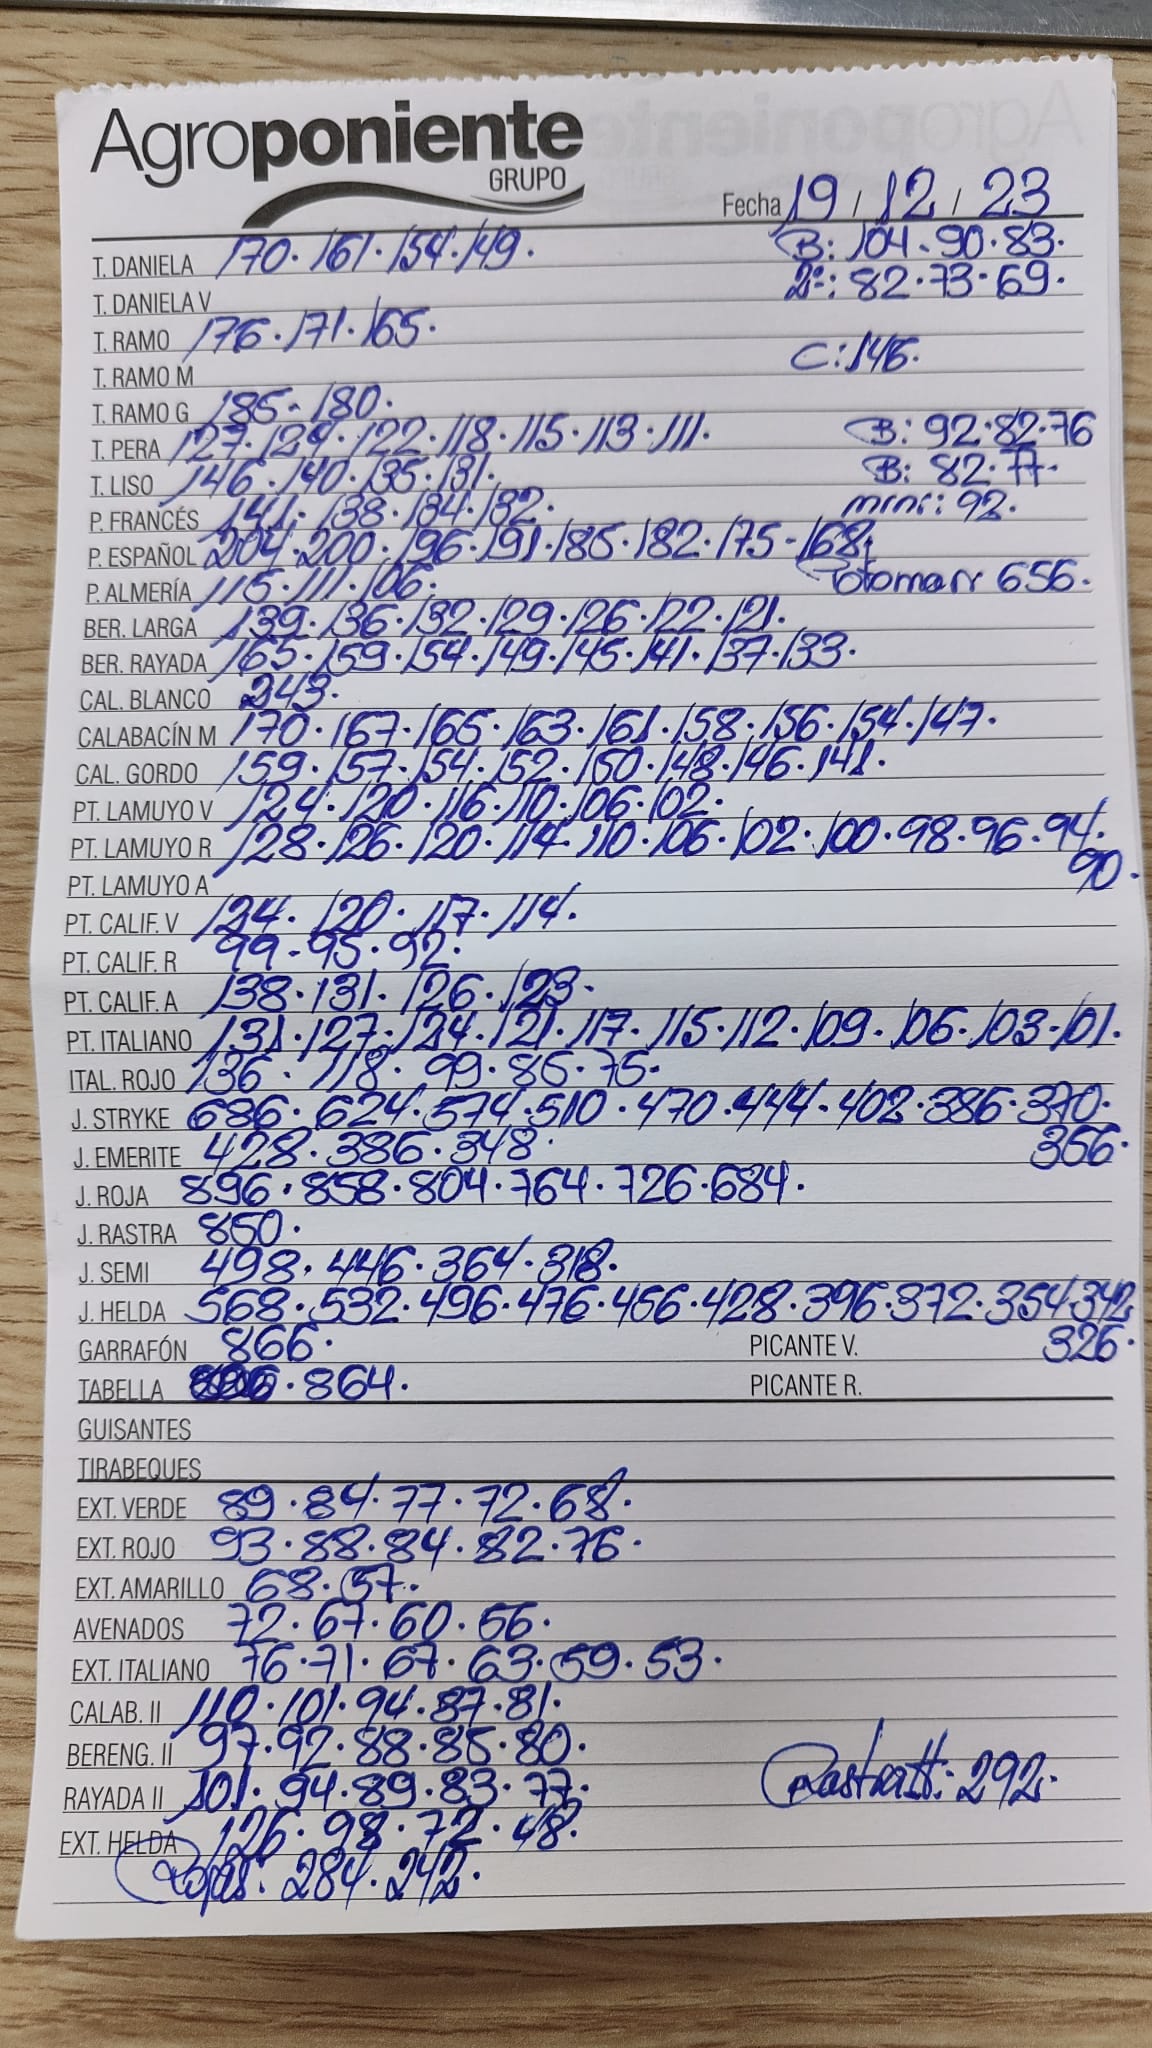 Agroponiente
GRUPO
Fecha 19 / 12 / 23
T. DANIELA 170. 161. 154. 149. B: 104. 90. 83.
T. DANIELA V 2ª: 82. 73. 69.
T. RAMO 176. 171. 165.
T. RAMO M C: 146.
T. RAMO G 185. 180.
T. PERA 127. 124. 122. 118. 115. 113. 111. B: 92. 82. 76
T. LISO 146. 140. 135. 131. B: 82. 77.
P. FRANCÉS 141. 138. 134. 132. mini: 92.
P. ESPAÑOL 204. 200. 196. 191. 185. 182. 175. 168.
P. ALMERÍA 115. 111. 106. 656.
BER. LARGA 139. 136. 132. 129. 126. 122. 121.
BER. RAYADA 165. 159. 154. 149. 145. 141. 137. 133.
CAL. BLANCO 243.
CALABACÍN M 170. 167. 165. 163. 161. 158. 156. 154. 147.
CAL. GORDO 159. 157. 154. 152. 150. 148. 146. 141.
PT. LAMUYO V 124. 120. 116. 110. 106. 102.
PT. LAMUYO R 128. 126. 120. 114. 110. 106. 102. 100. 98. 96. 94.
90.
PT. LAMUYO A
PT. CALIF. V 124. 120. 117. 114.
PT. CALIF. R 99. 95. 92.
PT. CALIF. A 138. 131. 126. 123.
PT. ITALIANO 131. 127. 124. 121. 117. 115. 112. 109. 106. 103. 101.
ITAL. ROJO 136. 118. 99. 85. 75.
J. STRYKE 686. 624. 574. 510. 470. 444. 402. 386. 370.
J. EMERITE 428. 386. 348. 356.
J. ROJA 896. 858. 804. 764. 726. 684.
J. RASTRA 850.
J. SEMI 498. 446. 364. 318.
J. HELDA 568. 532. 496. 476. 456. 428. 396. 372. 354. 342.
GARRAFÓN 866. PICANTE V. 326.
TABELLA 864. PICANTE R.
GUISANTES
TIRABEQUES
EXT. VERDE 89. 84. 77. 72. 68.
EXT. ROJO 93. 88. 84. 82. 76.
EXT. AMARILLO 68. 57.
AVENADOS 72. 67. 60. 56.
EXT. ITALIANO 76. 71. 67. 63. 59. 53.
CALAB. II 110. 101. 94. 87. 81.
BERENG. II 97. 92. 88. 85. 80.
RAYADA II 101. 94. 89. 83. 77. 292.
EXT. HELDA 126. 98. 72. 48.
284. 242.